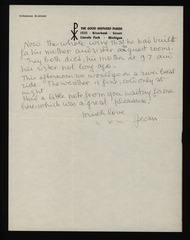 THE GOOD SHEPHERD PARISH
Street
Lincoln Park - Michigan
Now the whole wing that he had built
for his mother and sister are guest rooms.
They both died, his mother at 97 and
his sister not long ago.
This afternoon we are going on a river boat
ride. The weather is fine, cool only at
night.
Had a little note from you waiting for me
here, which was a great pleasure!
Much love
x x x Jean